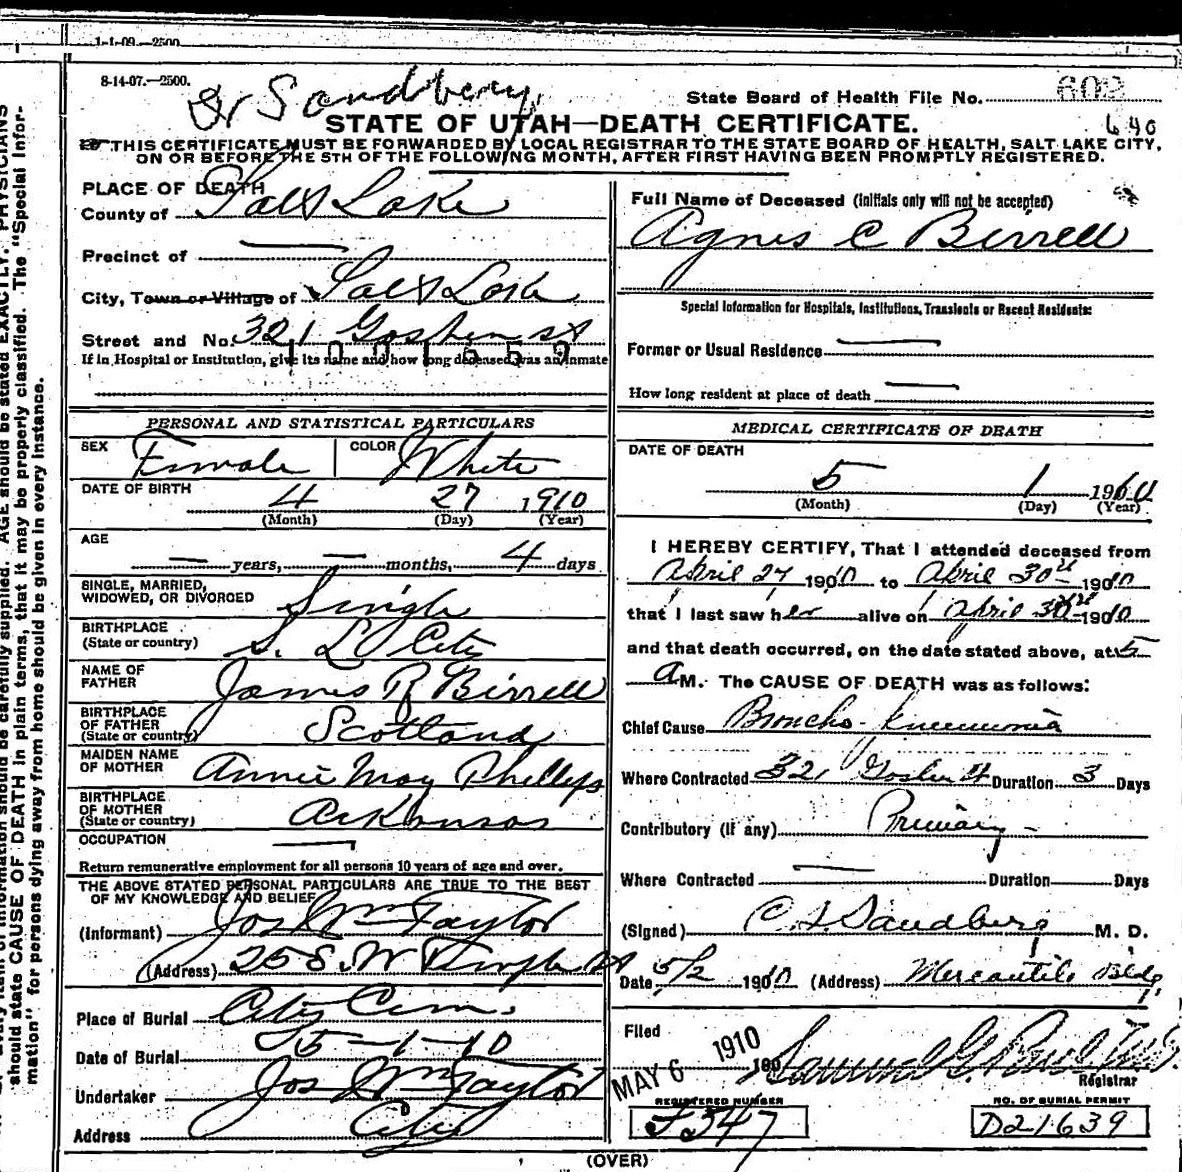 1-1-09.—2500
8-14-07.—2500.
Dr Sandberg
State Board of Health File No. 602
640
STATE OF UTAH—DEATH CERTIFICATE.
THIS CERTIFICATE MUST BE FORWARDED BY LOCAL REGISTRAR TO THE STATE BOARD OF HEALTH, SALT LAKE CITY,
ON OR BEFORE THE 5TH OF THE FOLLOWING MONTH, AFTER FIRST HAVING BEEN PROMPTLY REGISTERED.
PLACE OF DEATH
County of Salt Lake
Precinct of —
City, Town or Village of Salt Lake
Street and No. 321 Goshen st
If in Hospital or Institution, give its name and how long deceased was an inmate
PERSONAL AND STATISTICAL PARTICULARS
SEX Female COLOR White
DATE OF BIRTH 4 27 1910
(Month) (Day) (Year)
AGE
— years, — months, 4 days
SINGLE, MARRIED,
WIDOWED, OR DIVORCED Single
BIRTHPLACE
(State or country) S. L. City
NAME OF
FATHER James R Birrell
BIRTHPLACE
OF FATHER
(State or country) Scotland
MAIDEN NAME
OF MOTHER Annie May Phillips
BIRTHPLACE
OF MOTHER
(State or country) Arkansas
OCCUPATION —
Return remunerative employment for all persons 10 years of age and over.
THE ABOVE STATED PERSONAL PARTICULARS ARE TRUE TO THE BEST
OF MY KNOWLEDGE AND BELIEF
(Informant) Jos Wm Taylor
(Address) 25 S. W Temple st
Place of Burial City Cem.
Date of Burial 5-1-10
Undertaker Jos Wm Taylor
Address City
Full Name of Deceased (initials only will not be accepted)
Agnes C Birrell
Special Information for Hospitals, Institutions, Transients or Recent Residents:
Former or Usual Residence —
How long resident at place of death —
MEDICAL CERTIFICATE OF DEATH
DATE OF DEATH
5 1 1910
(Month) (Day) (Year)
I HEREBY CERTIFY, That I attended deceased from
April 27 1910 to April 30th 1910
that I last saw her alive on April 30th 1910
and that death occurred, on the date stated above, at 5
a M. The CAUSE OF DEATH was as follows:
Chief Cause Broncho-pneumonia
Where Contracted 321 Goshen st Duration 3 Days
Contributory (if any) Primary -
Where Contracted — Duration Days
(Signed) C. L. Sandberg M. D.
Date 5/2 1910 (Address) Mercantile Bldg
Filed
MAY 6 1910 190 Samuel G. Paul M.D.
Registrar
REGISTERED NUMBER
F547
NO. OF BURIAL PERMIT
D21639
(OVER)
AGE should be stated EXACTLY. PHYSICIANS
should state CAUSE OF DEATH in plain terms, that it may be properly classified. The "Special Infor-
mation" for persons dying away from home should be given in every instance.